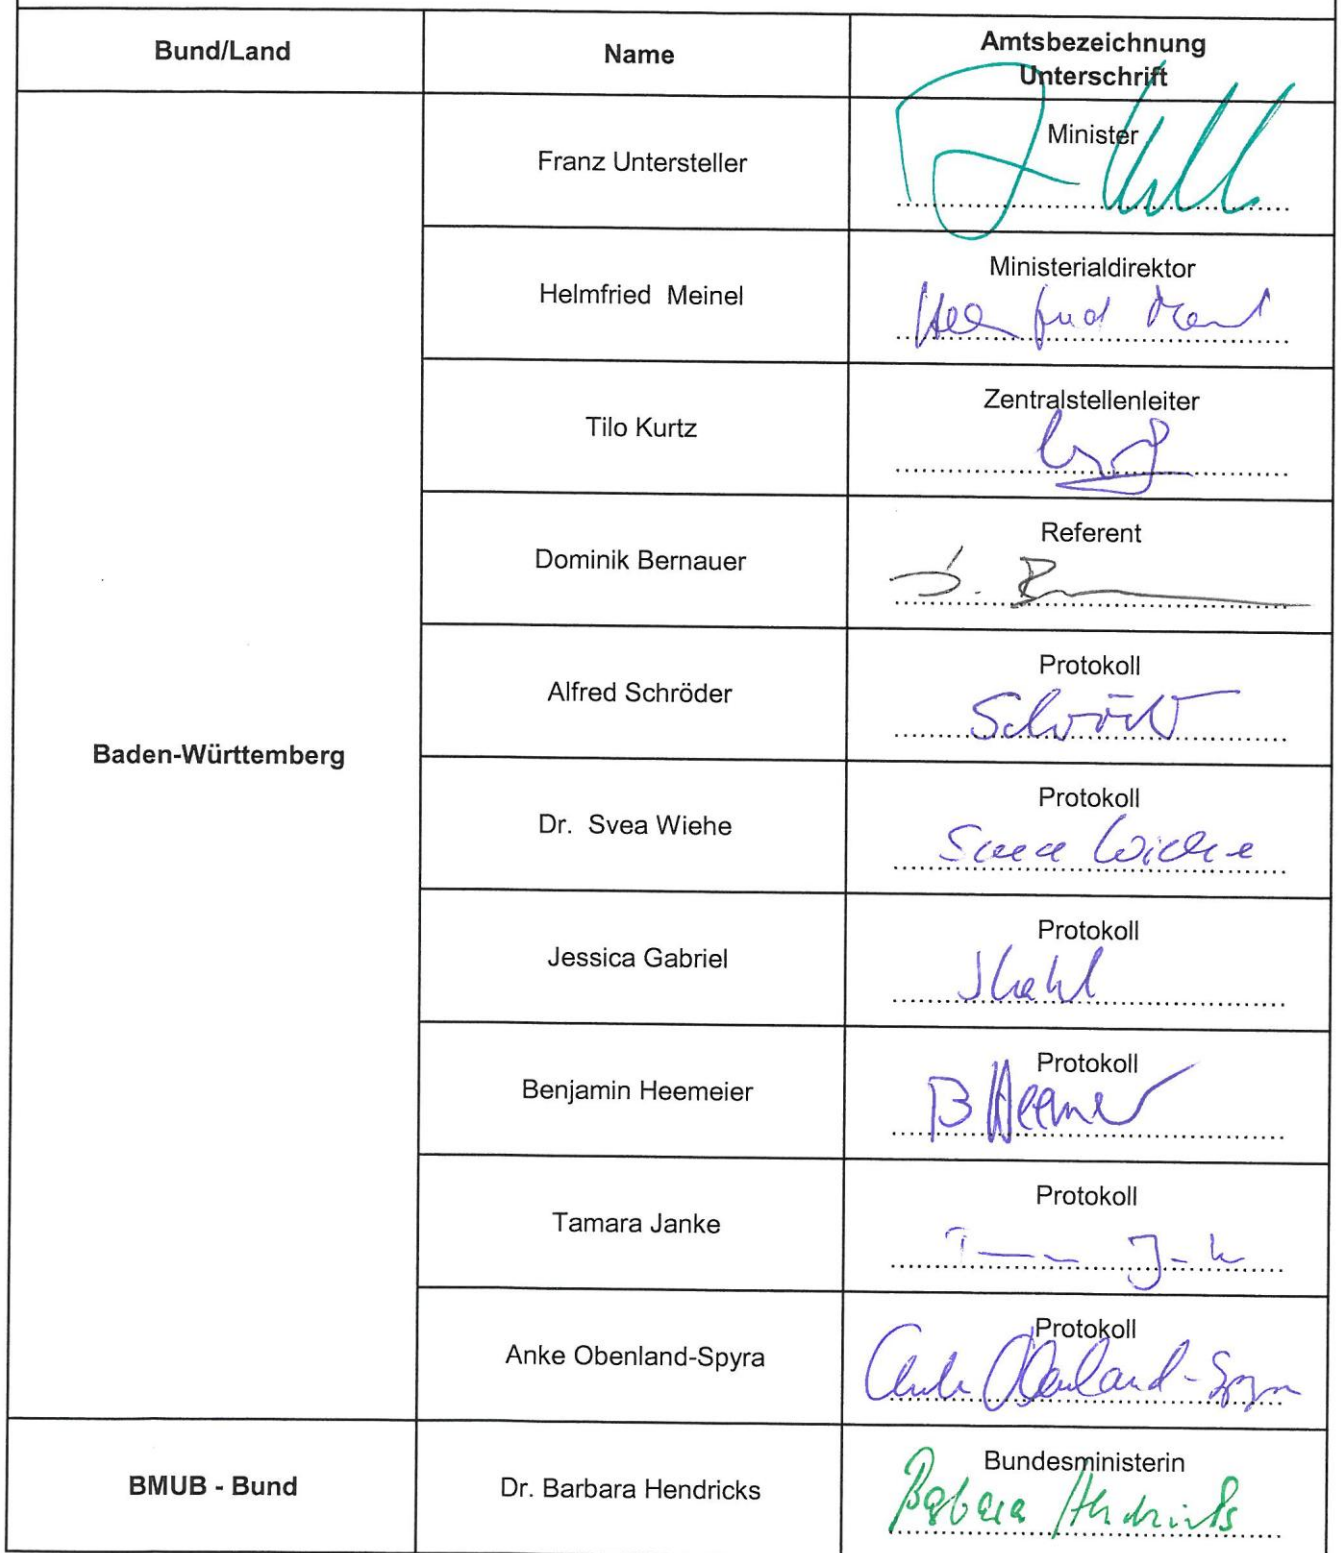 Bund/Land
Name
Amtsbezeichnung
Unterschrift
Baden-Württemberg
Franz Untersteller
Minister
Helmfried Meinel
Ministerialdirektor
Tilo Kurtz
Zentralstellenleiter
Dominik Bernauer
Referent
Alfred Schröder
Protokoll
Dr. Svea Wiehe
Protokoll
Svea Wiehe
Jessica Gabriel
Protokoll
Benjamin Heemeier
Protokoll
Tamara Janke
Protokoll
Anke Obenland-Spyra
Protokoll
Anke Obenland-Spyra
BMUB - Bund
Dr. Barbara Hendricks
Bundesministerin
Barbara Hendricks